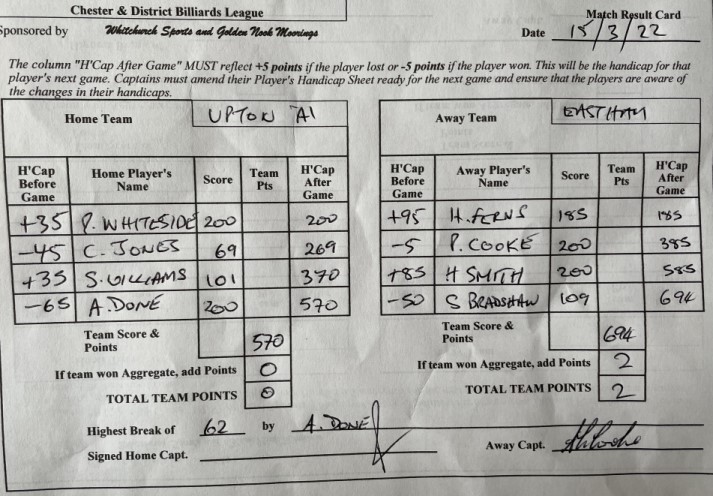 Chester & District Billiards League
Match Result Card
Sponsored by Whitchurch Sports and Golden Nook Moorings
Date 15/3/22
The column "H'Cap After Game" MUST reflect +5 points if the player lost or -5 points if the player won. This will be the handicap for that
player's next game. Captains must amend their Player's Handicap Sheet ready for the next game and ensure that the players are aware of
the changes in their handicaps.
Home Team UPTON A1
H'Cap Before Game Home Player's Name Score Team Pts H'Cap After Game
+35 P. WHITESIDE 200 200
-45 C. JONES 69 269
+35 S. WILLIAMS 101 370
-65 A. DONE 200 570
Team Score & Points 570
If team won Aggregate, add Points 0
TOTAL TEAM POINTS 0
Away Team EASTHAM
H'Cap Before Game Away Player's Name Score Team Pts H'Cap After Game
+95 H. FERNS 185 185
-5 P. COOKE 200 385
+85 H SMITH 200 585
-50 S BRADSHAW 109 694
Team Score & Points 694
If team won Aggregate, add Points 2
TOTAL TEAM POINTS 2
Highest Break of 62 by A. DONE
Signed Home Capt.
Away Capt.